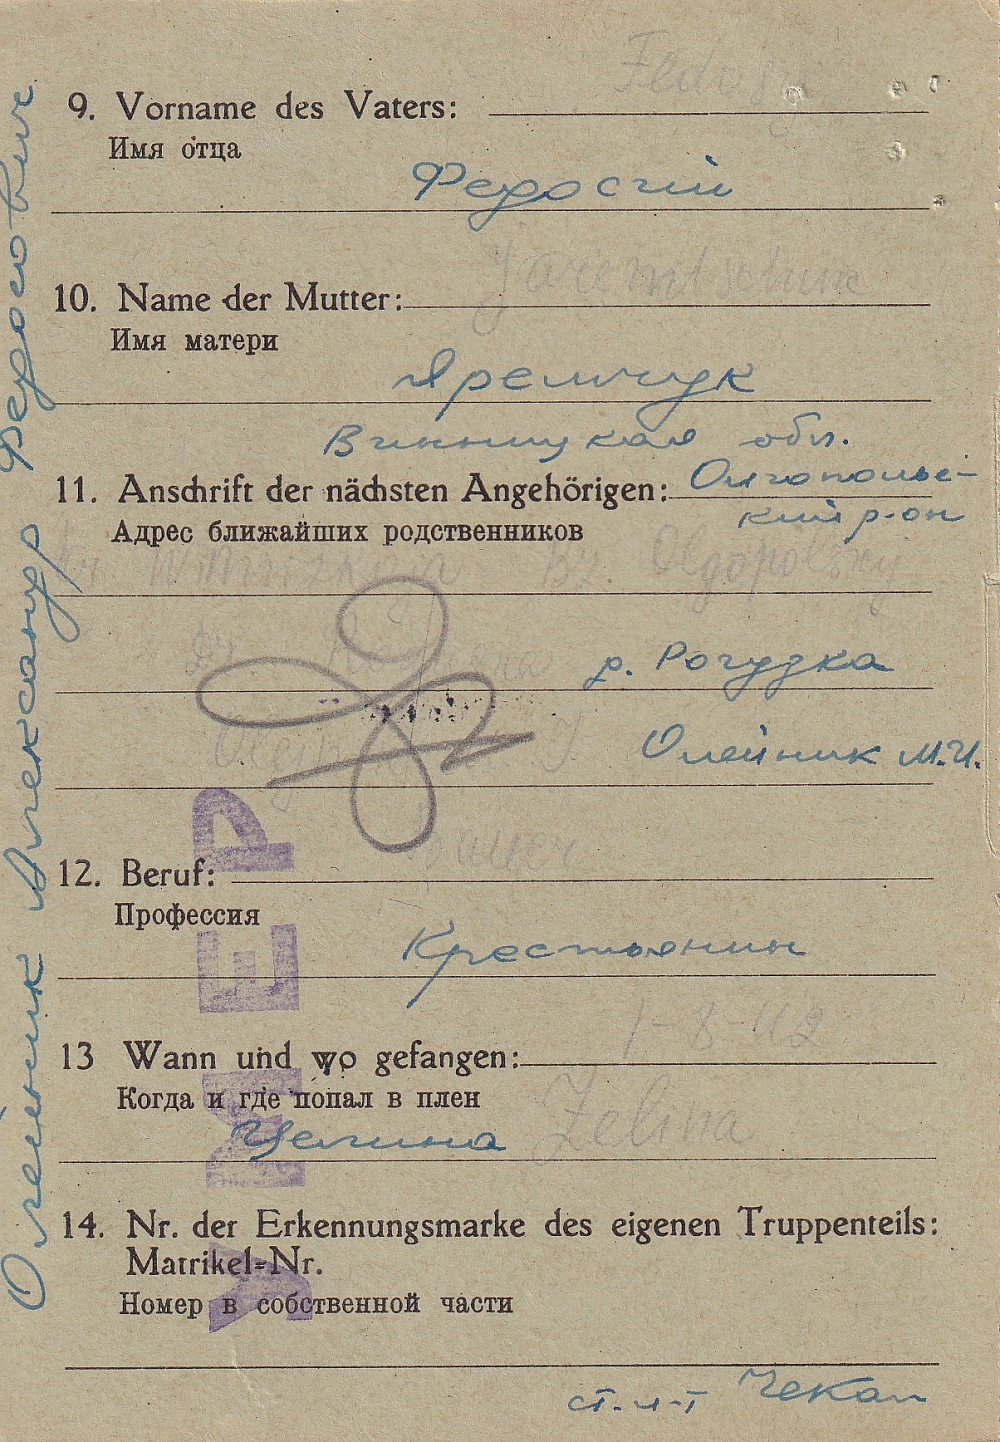 9. Vorname des Vaters:
Имя отца
Федосий
10. Name der Mutter:
Имя матери
Яремчук
Винницкая обл.
11. Anschrift der nächsten Angehörigen: Олгопольс-
Адрес ближайших родственников
кий р-он
Olgopolskij
д. Рогузка
Олейник М.И.
12. Beruf:
Bauer
Профессия
Крестьянин
13 Wann und wo gefangen: 1-8 42
Когда и где попал в плен
Целина Zelina
14. Nr. der Erkennungsmarke des eigenen Truppenteils:
Matrikel-Nr.
Номер в собственной части
ст. л-т Чекал
Олейник Александр Федосович
УМЕР